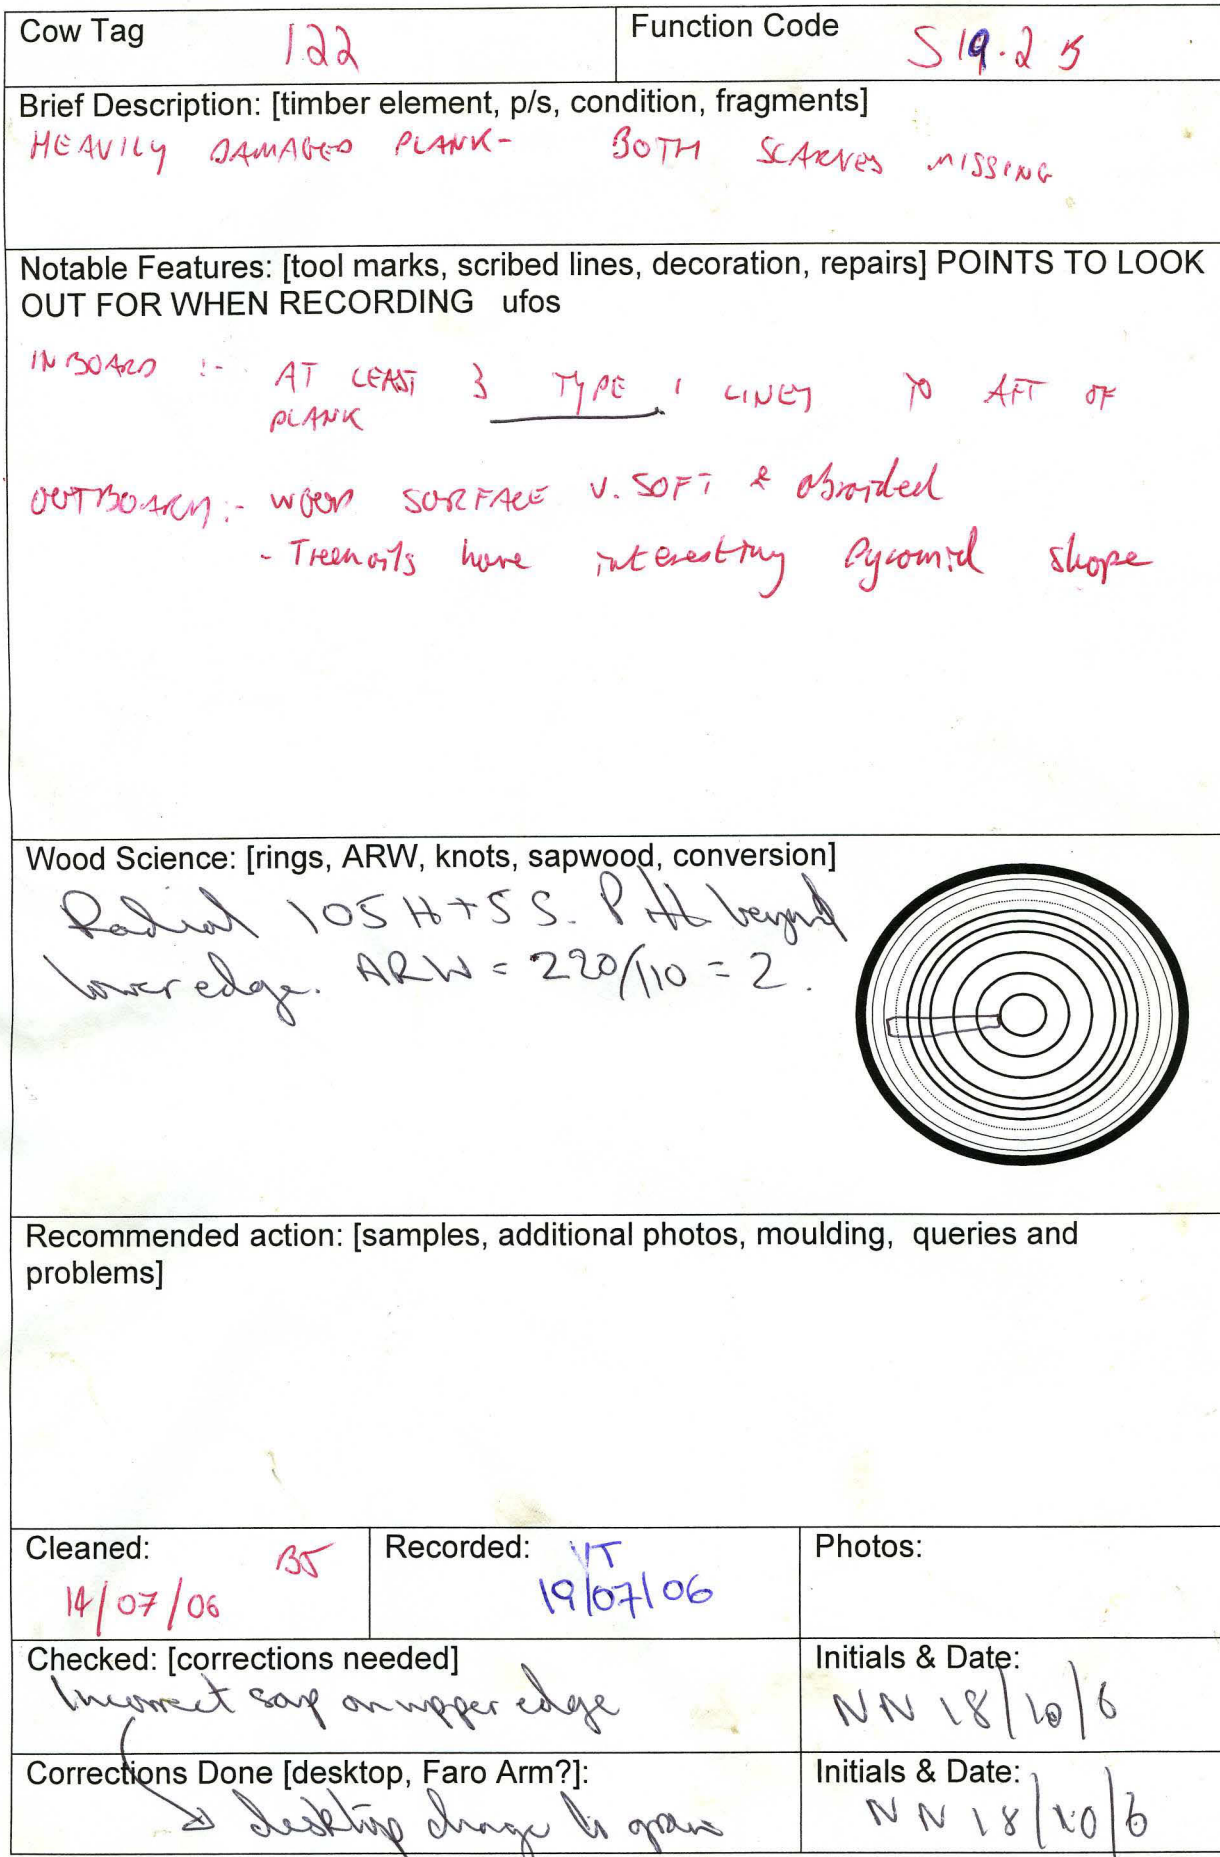 Cow Tag 122
Function Code S19.2 B
Brief Description: [timber element, p/s, condition, fragments]
HEAVILY DAMAGED PLANK- BOTH SCARVES MISSING
Notable Features: [tool marks, scribed lines, decoration, repairs] POINTS TO LOOK
OUT FOR WHEN RECORDING ufos
INBOARD :- AT LEAST 3 TYPE 1 LINES TO AFT OF
PLANK
OUTBOARD:- WOOD SURFACE V. SOFT & abraided
- Treenails have interesting Pyramid shape
Wood Science: [rings, ARW, knots, sapwood, conversion]
Radial 105 H+5 S. Pith beyond
lower edge. ARW = 220/110 = 2.
Recommended action: [samples, additional photos, moulding, queries and
problems]
Cleaned: BJ
14/07/06
Recorded: VT
19/07/06
Photos:
Checked: [corrections needed]
Incorrect sap on upper edge
Initials & Date:
NN 18/10/6
Corrections Done [desktop, Faro Arm?]:
desktop change to grain
Initials & Date:
NN 18/10/6